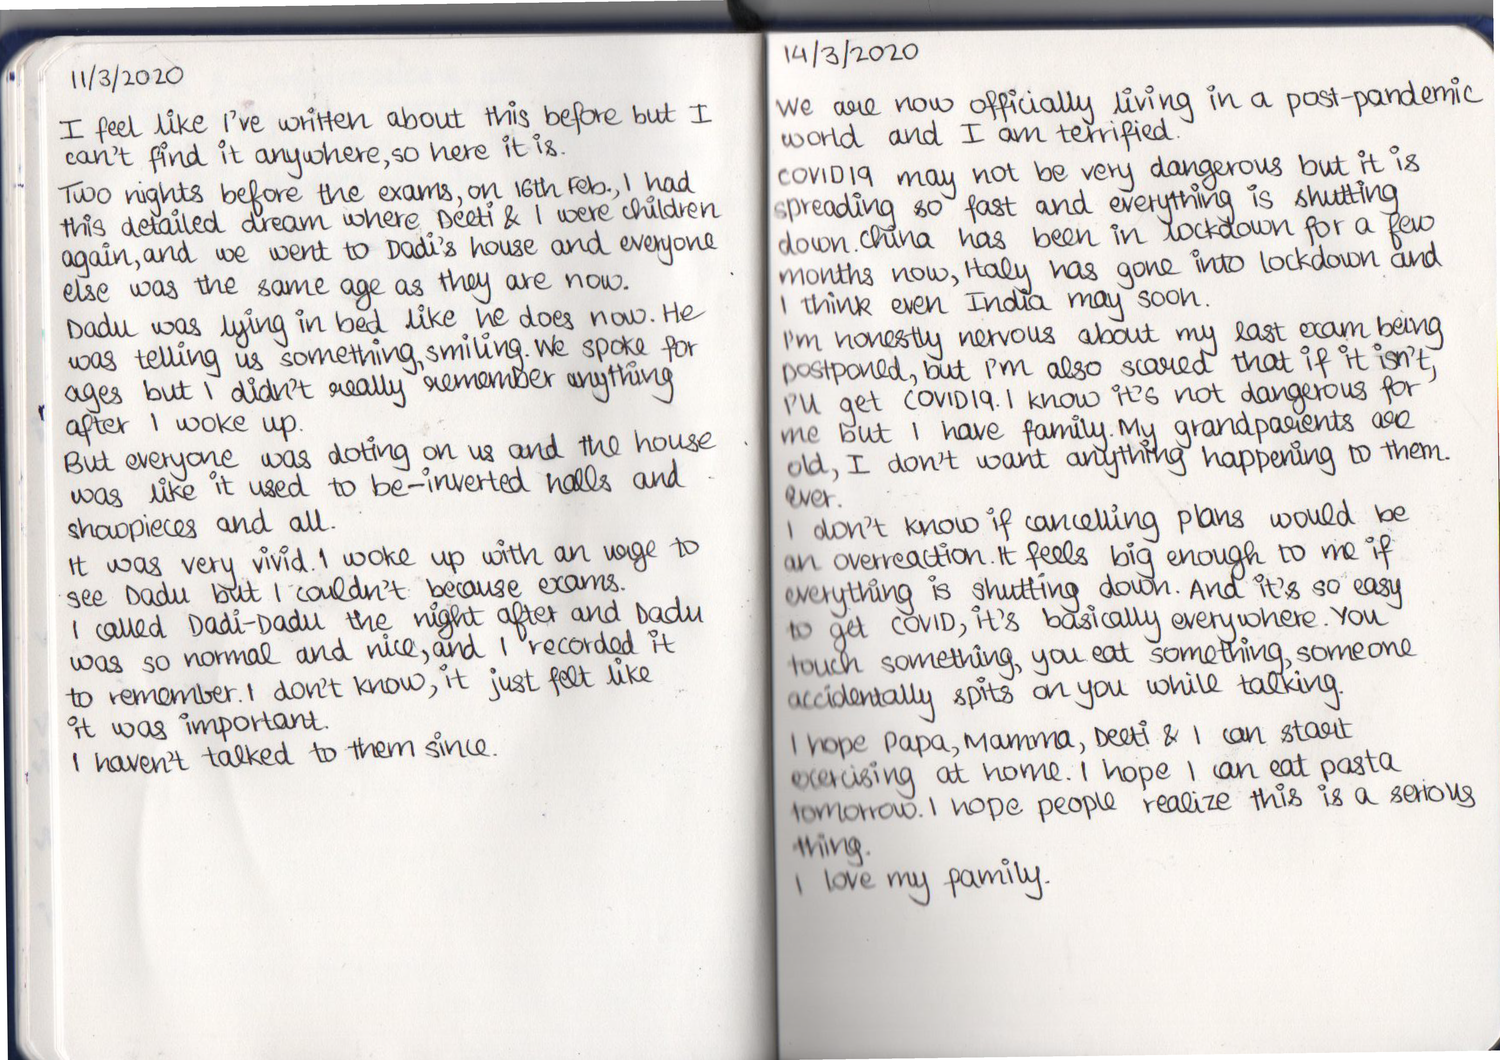 11/3/2020
I feel like I've written about this before but I
can't find it anywhere, so here it is.
Two nights before the exams, on 16th Feb., I had
this detailed dream where Deeti & I were children
again, and we went to Dadi's house and everyone
else was the same age as they are now.
Dadu was lying in bed like he does now. He
was telling us something, smiling. We spoke for
ages but I didn't really remember anything
after I woke up.
But everyone was doting on us and the house
was like it used to be-inverted halls and
showpieces and all.
It was very vivid. I woke up with an urge to
see Dadu but I couldn't because exams.
I called Dadi-Dadu the night after and Dadu
was so normal and nice, and I recorded it
to remember. I don't know, it just felt like
it was important.
I haven't talked to them since.
14/3/2020
We are now officially living in a post-pandemic
world and I am terrified.
COVID19 may not be very dangerous but it is
spreading so fast and everything is shutting
down. China has been in lockdown for a few
months now, Italy has gone into lockdown and
I think even India may soon.
I'm honestly nervous about my last exam being
postponed, but I'm also scared that if it isn't,
I'll get COVID19. I know it's not dangerous for
me but I have family. My grandparents are
old, I don't want anything happening to them.
Ever.
I don't know if cancelling plans would be
an overreaction. It feels big enough to me if
everything is shutting down. And it's so easy
to get COVID, it's basically everywhere. You
touch something, you eat something, someone
accidentally spits on you while talking.
I hope Papa, Mamma, Deeti & I can start
exercising at home. I hope I can eat pasta
tomorrow. I hope people realize this is a serious
thing.
I love my family.